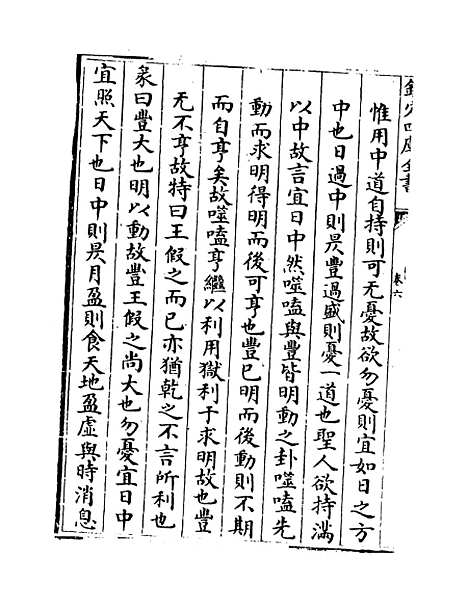 欽定四庫全書
卷六
惟用中道自持則可无憂故欲勿憂則宜如日之方
中也日過中則昃豐過盛則憂一道也聖人欲持滿
以中故言宜日中然噬嗑與豐皆明動之卦噬嗑先
動而求明得明而後可亨也豐已明而後動則不期
而自亨矣故噬嗑亨繼以利用獄利于求明故也豐
无不亨故特曰王假之而已亦猶乾之不言所利也
彖曰豐大也明以動故豐王假之尚大也勿憂宜日中
宜照天下也日中則昃月盈則食天地盈虛與時消息